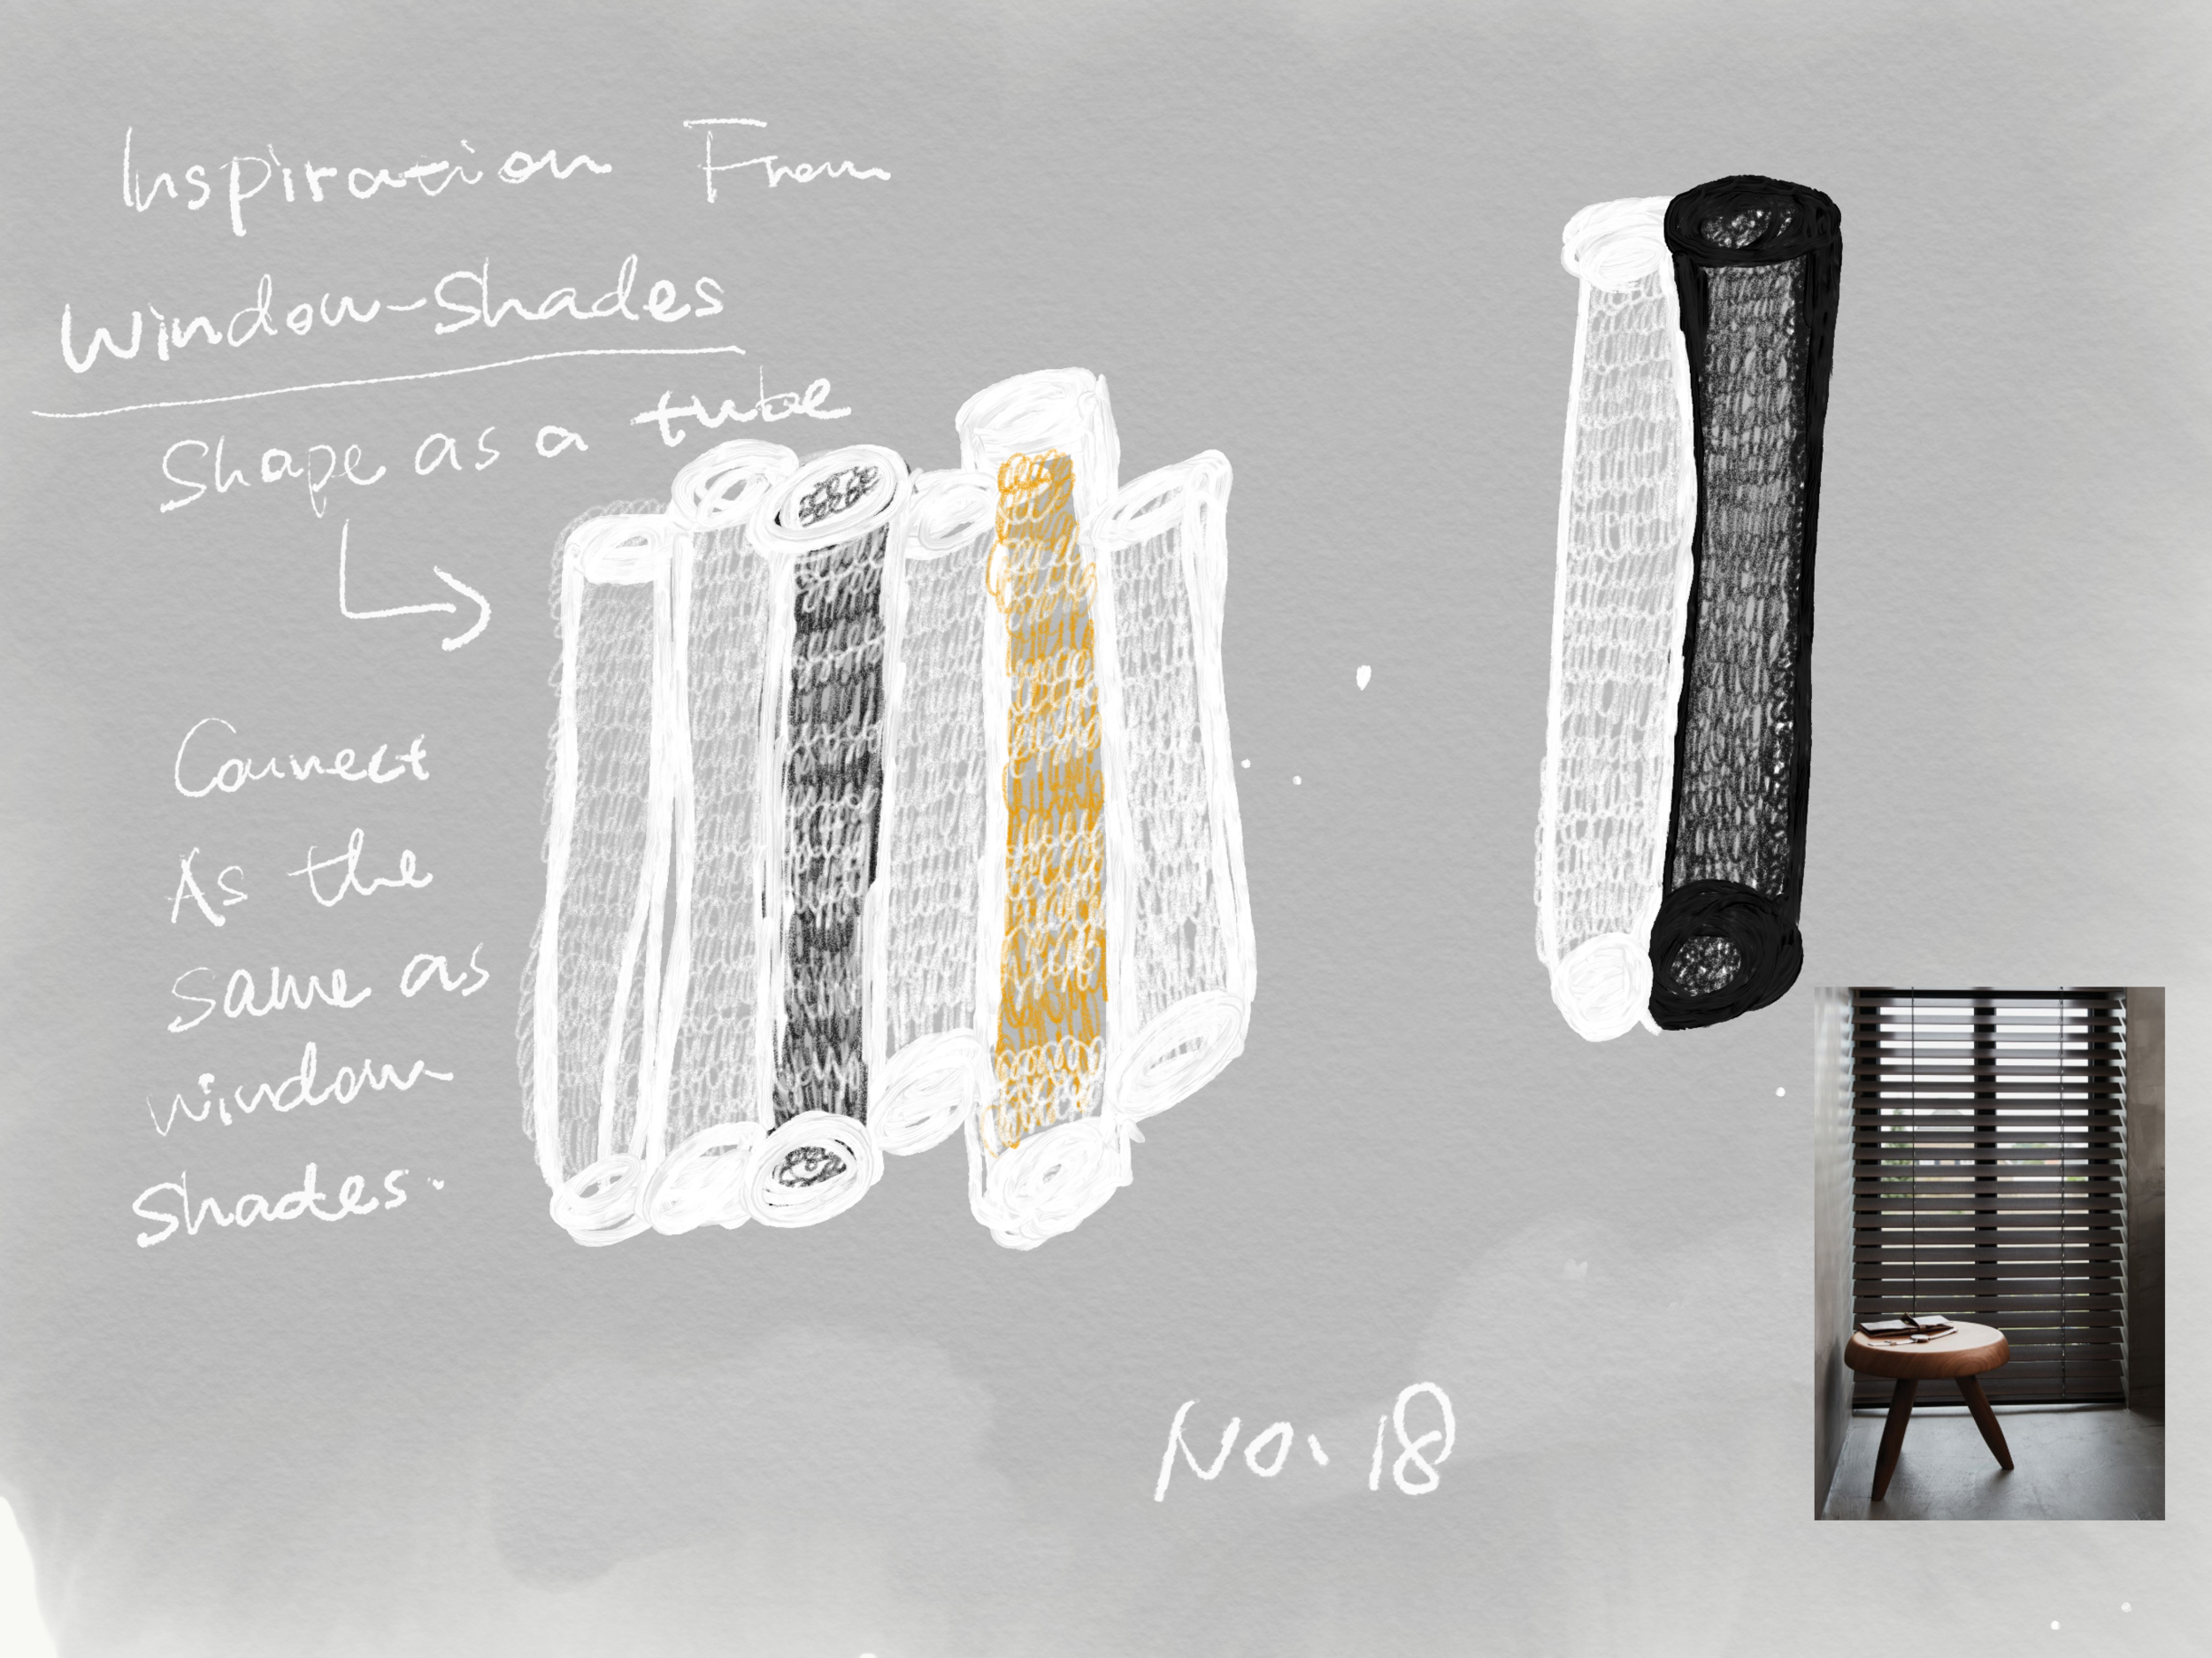 Inspiration From
Window-Shades
Shape as a tube
Connect
As the
same as
window
Shades.
No. 18